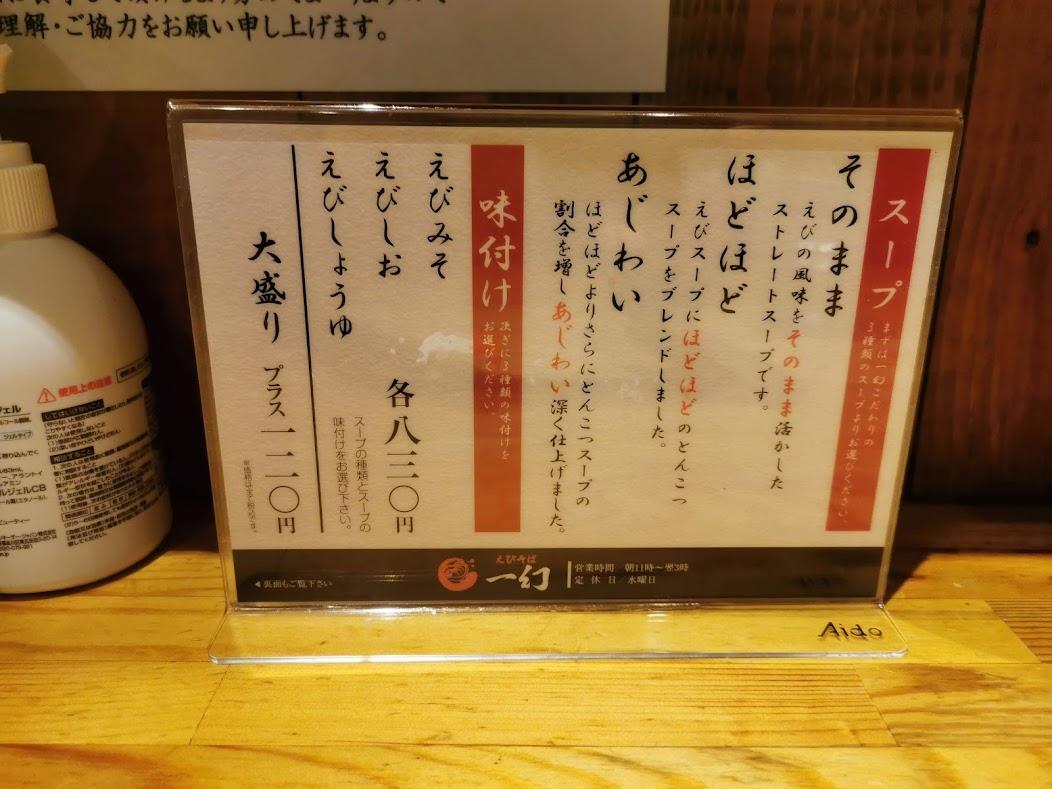 理解・ご協力をお願い申し上げます。
スープ
まずは一幻こだわりの
3種類のスープよりお選びください。
そのまま
えびの風味をそのまま活かした
ストレートスープです。
ほどほど
えびスープにほどほどのとんこつ
スープをブレンドしました。
あじわい
ほどほどよりさらにとんこつスープの
割合を増しあじわい深く仕上げました。
味付け
次ぎに3種類の味付けを
お選びください。
えびみそ
えびしお
えびしょうゆ
各八三〇円
スープの種類とスープの
味付けをお選び下さい。
大盛り プラス一二〇円
◀裏面もご覧下さい
えびそば
一幻
営業時間 朝11時～翌3時
定休日 水曜日
Aido
使用上の注意